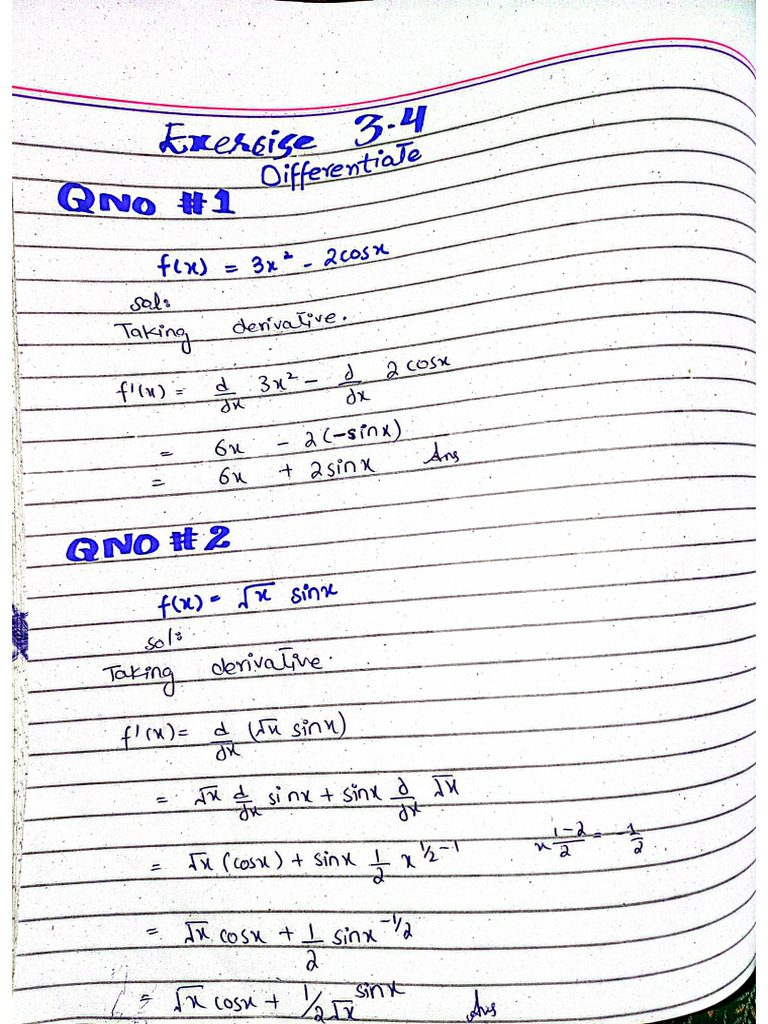 Exercise 3.4
Differentiate
QNO #1
f(x) = 3x² - 2cosx
sol:
Taking derivative.
f'(x) = d/dx 3x² - d/dx 2cosx
= 6x - 2(-sinx)
= 6x + 2sinx Ans
QNO #2
f(x) = √x sinx
sol:
Taking derivative.
f'(x) = d/dx (√x sinx)
= √x d/dx sinx + sinx d/dx √x
= √x (cosx) + sinx 1/2 x^1/2-1 x 1-2/2 = -1/2
= √x cosx + 1/2 sinx^-1/2
= √x cosx + 1/2√x sinx Ans